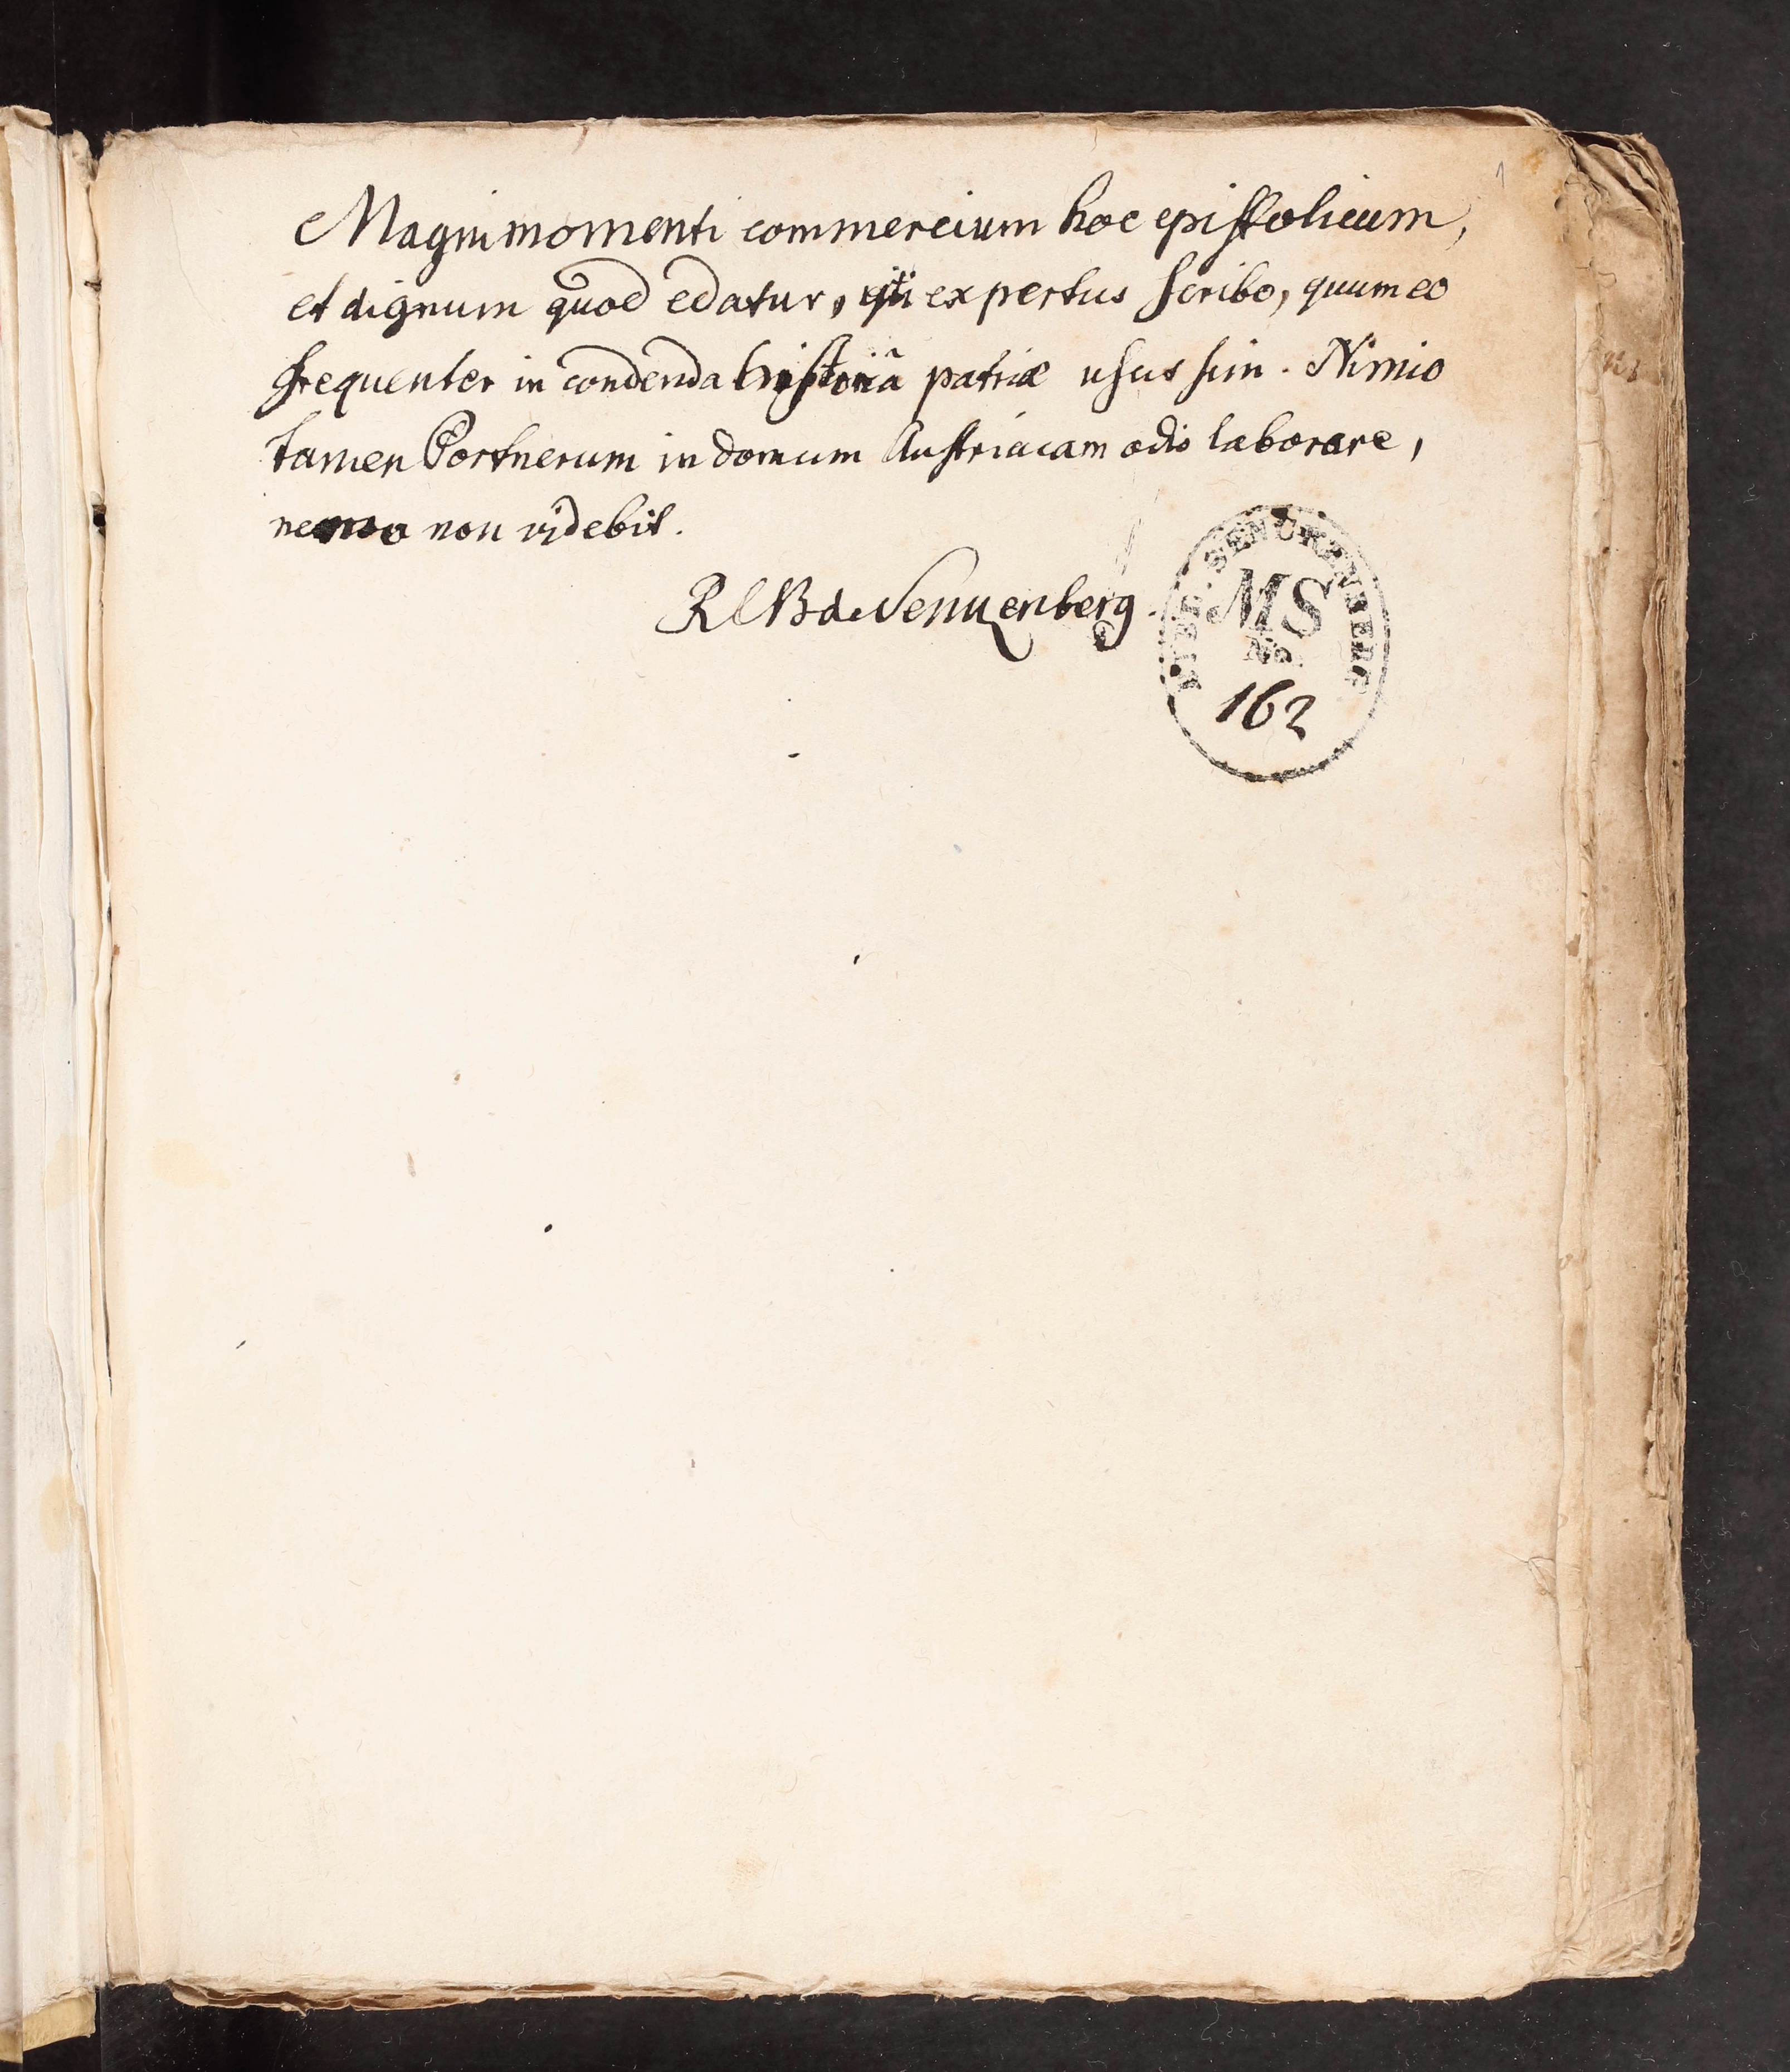 1
Magni momenti commercium hoc epistolicum,
et dignum quod edatur, uti expertus scribo, quum eo
frequenter in condenda historiâ patriæ usus sim. Nimio
tamen Portnerum in domum Austriacam odio laborare,
nemo non videbit.
R L B de Senckenberg.
MS
No
162